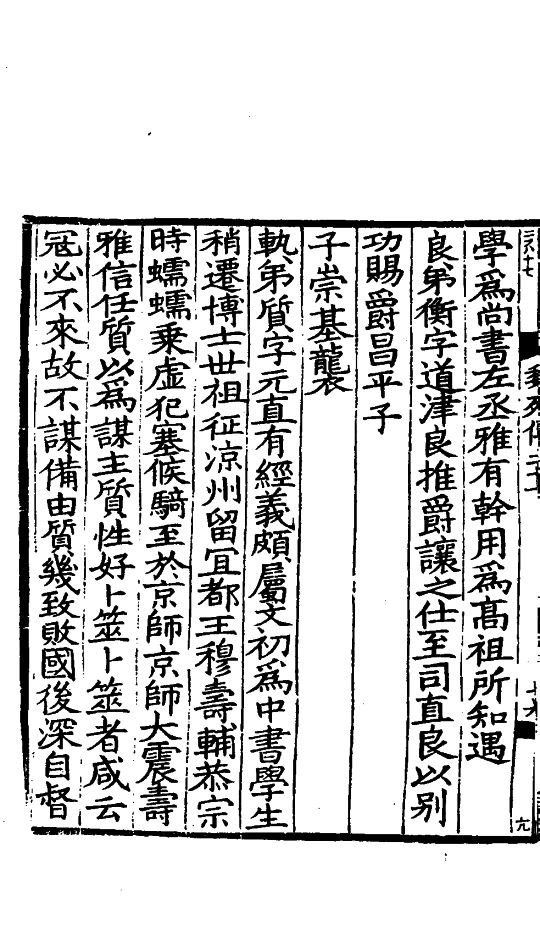 學爲尚書左丞雅有幹用爲髙祖所知遇
良弟衡字道津良推爵讓之仕至司直良以别
功賜爵昌平子
子崇基襲
軌弟質字元直有經義頗屬文初爲中書學生
稍遷博士世祖征涼州留宜都王穆壽輔恭宗
時蠕蠕乘虚犯塞候騎至於京師京師大震壽
雅信任質以爲謀主質性好卜筮卜筮者咸云
冦必不來故不謀備由質幾致敗國後深自督